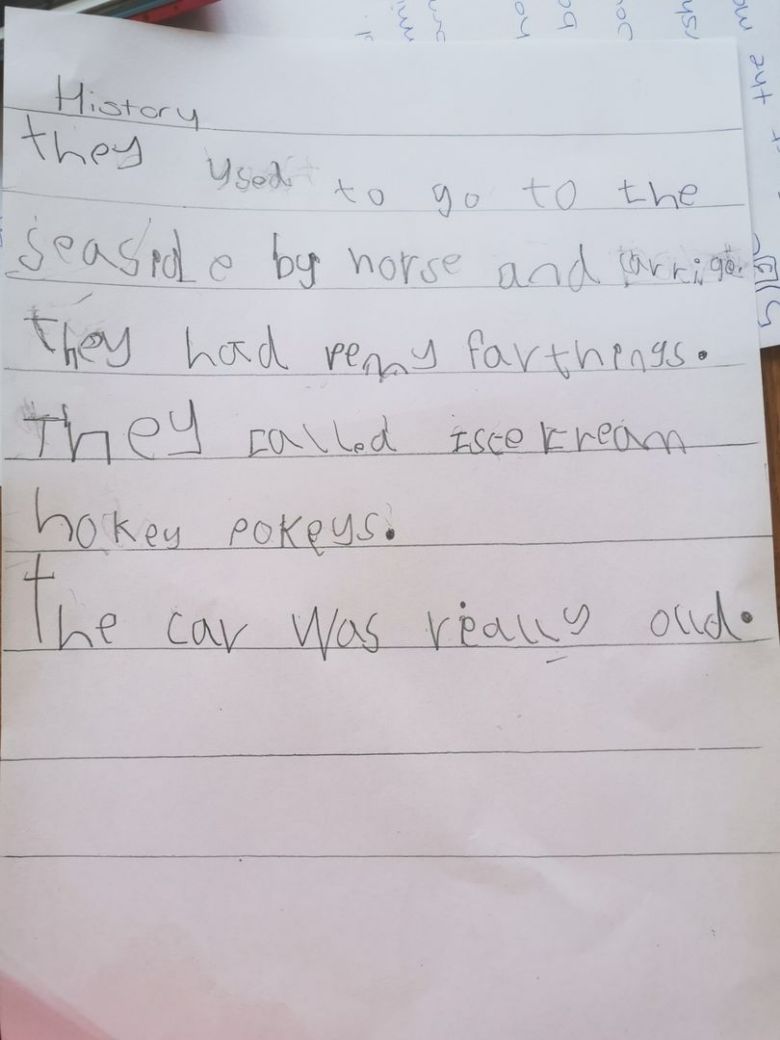 History
they used to go to the
seaside by horse and carrige.
they had penny farthings.
They called iscekream
hokey pokeys.
The car was really oud.